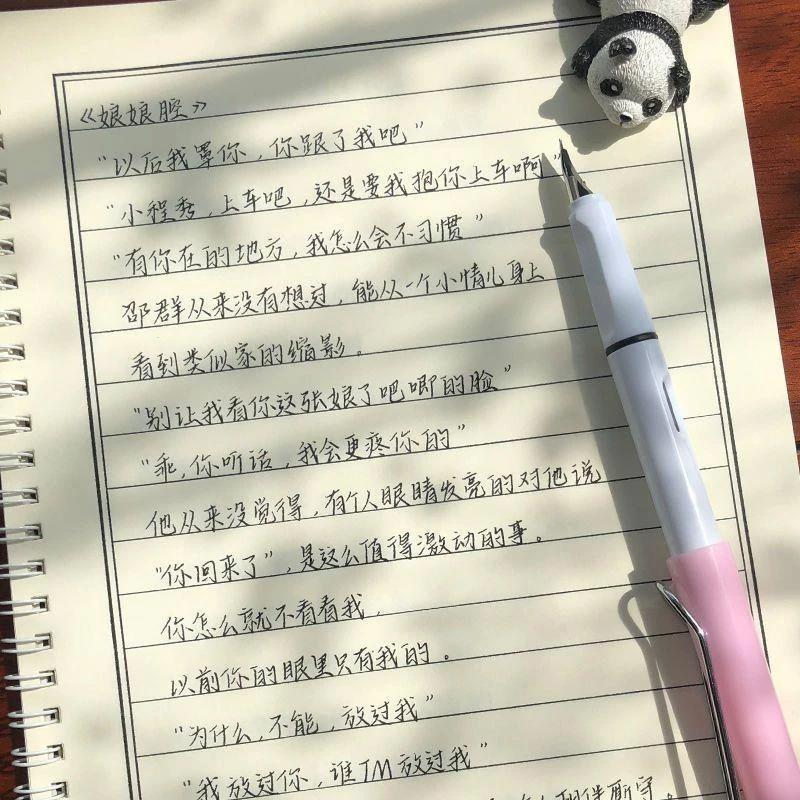 《娘娘腔》
“以后我罩你，你跟了我吧”
“小程秀，上车吧，还是要我抱你上车啊”
“有你在的地方，我怎么会不习惯”
邵群从来没有想过，能从一个小情儿身上
看到类似家的缩影。
“别让我看你这张娘了吧唧的脸”
“乖，你听话，我会更疼你的”
他从来没觉得，有个人眼睛发亮的对他说
“你回来了”，是这么值得激动的事。
你怎么就不看看我，
以前你的眼里只有我的。
“为什么，不能，放过我”
“我放过你，谁TM放过我”
相伴厮守。